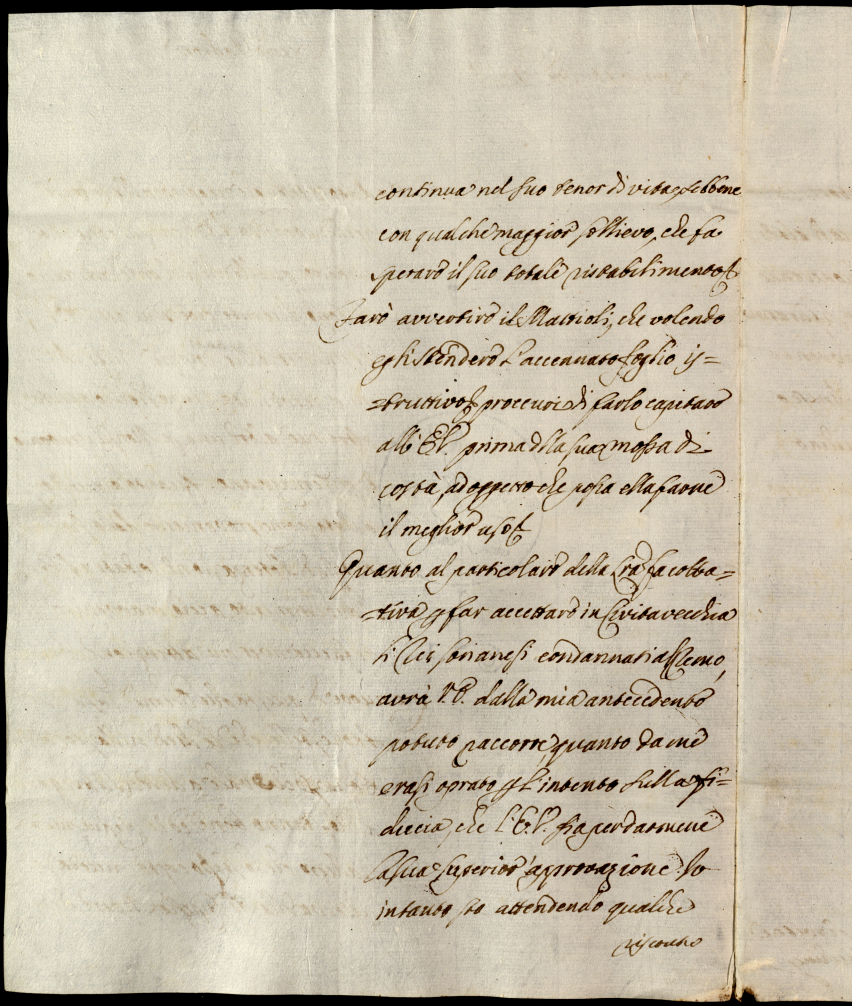 continua nel suo tenor di vita, sebbene
con qualche maggior sollievo, che fa
sperare il suo totale ristabilimento
Farò avvertire il Mattioli, che volendo
egli stendere l'accennato foglio i=
=struttivo, proccuri di farlo capitare
all'E.V. prima della sua mossa di
costà, ad oggetto che possa ella farne
il meglior uso
Quanto al particolare della lrã facolta=
=tiva p far accettare in Civitavecchia
li Rei sorianesi condannati al Remo,
avrà V.E. dalla mia antecedente
potuto raccorre, quanto da me
erasi oprato p l'intento sulla fi=
ducia, che l'E.V. sia per darmene
la sua superior approvazione. Io
intanto sto attendendo qualche
riscontro